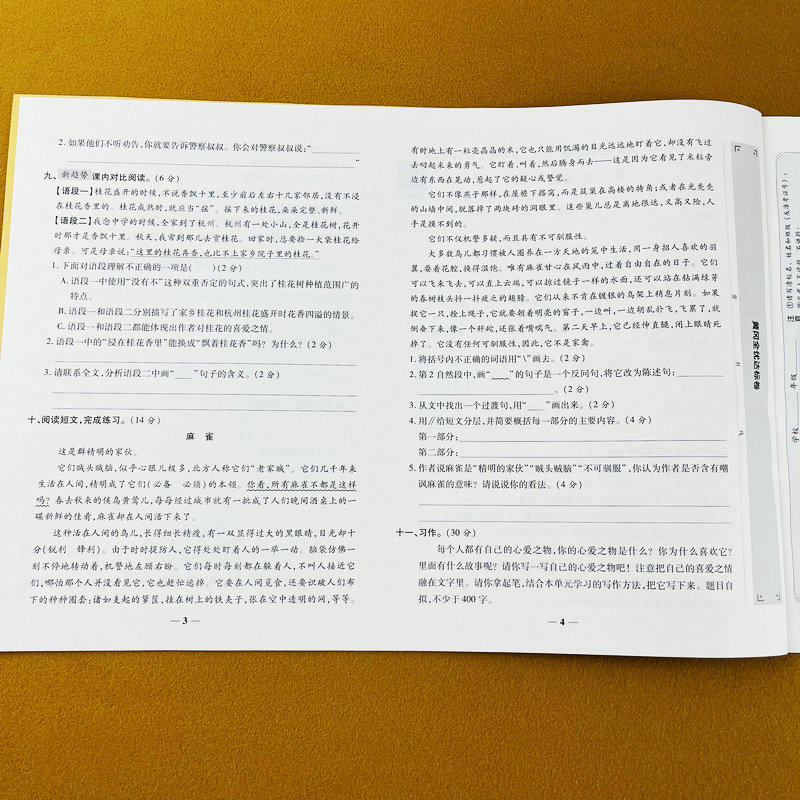 2. 如果他们不听劝告,你就要告诉警察叔叔。你会对警察叔叔说:“
”
九、新趋势 课内对比阅读。(6 分)
【语段一】桂花盛开的时候,不说香飘十里,至少前后左右十几家邻居,没有不浸
在桂花香里的。桂花成熟时,就应当“摇”。摇下来的桂花,朵朵完整、新鲜。
【语段二】我念中学的时候,全家到了杭州。杭州有一处小山,全是桂花树,花开
时那才是香飘十里。秋天,我常到那儿去赏桂花。回家时,总要捡一大袋桂花给
母亲。可是母亲说:“这里的桂花再香,也比不上家乡院子里的桂花。”
1. 下面对语段理解不正确的一项是( )(2 分)
A. 语段一中使用“没有不”这种双重否定的句式,突出了桂花树种植范围广的
特点。
B. 语段一和语段二分别描写了家乡桂花和杭州桂花盛开时花香四溢的情景。
C. 语段一和语段二都能体现出作者对桂花的喜爱之情。
2. 语段一中的“浸在桂花香里”能换成“飘着桂花香”吗? 为什么? (2 分)
3. 请联系全文,分析语段二中画“ ”句子的含义。(2 分)
十、阅读短文,完成练习。(14 分)
麻 雀
这是群精明的家伙。
它们贼头贼脑,似乎心眼儿极多,北方人称它们“老家贼”。它们几千年来
生活在人间,精明成了它们(必备 必须)的本领。你看,所有麻雀不都是这样
吗? 春去秋来的候鸟黄莺儿,每每经过城市就有一批成了人们晚间酒桌上的一
碟新鲜的佳肴,麻雀却在人间活下来了。
这种活在人间的鸟儿,长得细长精瘦,有一双显得过大的黑眼睛,目光却十
分(锐利 锋利)。由于时时提防人,它得处处盯着人的一举一动。脑袋仿佛一
刻不停地转动着,机警地左顾右盼。它们每时每刻都在躲着人,不叫人接近它
们,哪怕那个人并没看见它,它也赶忙逃掉。它要在人间觅食,还要识破人们布
下的种种圈套;诸如支起的箩筐,挂在树上的铁夹子,张在空中透明的网,等等。
— 3 —
有时地上有一粒亮晶晶的米,它也只能用饥渴的目光远远地盯着它,却没有飞过
去叼起米来的勇气。它盯着、叫着,然后腾身而去——这是因为它看见了米粒旁
边有东西在晃动,惹起了它的疑心或警觉。
它们不像燕子那样,在屋檐下搭窝,而是筑巢在高楼的犄角;或者在光秃秃
的山墙中间,脱落掉了两块砖的洞眼里。这些巢儿总是离地很远,又高又险,人
手是摸不到的。
它们不仅机警多疑,而且具有不可驯服性。
大多数鸟儿都习惯被人圈养在一方天地的笼中生活,用一身招人喜欢的羽
翼,耍着花腔,换得温饱。唯有麻雀甘心在风雨中,过着自由自在的日子。它们
可以飞来飞去,可以直上云端,可以掠过镜子一样的水面,还可以站在钻满绿芽
的春树枝头抖一抖疲乏的翅膀。它们从来不肯在镀银的鸟架上稍息片刻。如果
捉它一只,拴上绳子,它就要朝着明亮的窗子,一边叫,一边胡乱扑飞,飞累了,就
倒垂下来,像一个秤砣,还张着嘴喘气。第二天早上,它已经伸直腿,闭上眼睛死
掉了。它没有任何可驯服性,因此,它不是家禽。
1. 将括号内不正确的词语用“\”画去。(2 分)
2. 第 2 自然段中,画“ ”的句子是一个反问句,将它改为陈述句:
。(2 分)
3. 从文中找出一个过渡句,用“ ”画出来。(2 分)
4. 用∥给短文分层,并简要概括每一部分的主要内容。(4 分)
第一部分:
第二部分:
5. 作者说麻雀是“精明的家伙”“贼头贼脑”“不可驯服”,你认为作者是否含有嘲
讽麻雀的意味? 请说说你的看法。(4 分)
十一、习作。(30 分)
每个人都有自己的心爱之物,你的心爱之物是什么? 你为什么喜欢它?
里面有什么故事呢? 请你写一写自己的心爱之物吧! 注意把自己的喜爱之情
融在文字里。请你拿起笔,结合本单元学习的写作方法,把它写下来。题目自
拟,不少于 400 字。
— 4 —
黄冈全优达标卷
密
封
线
注
意
①请写清校名、姓名和班级(或准考证号);
学校
年级